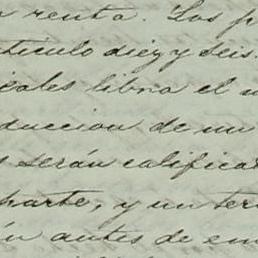 renta. Los p
ticulo diez y seis.
cales libra el
duccion de un
s serán calificar
parte, y un ter
ún antes de em